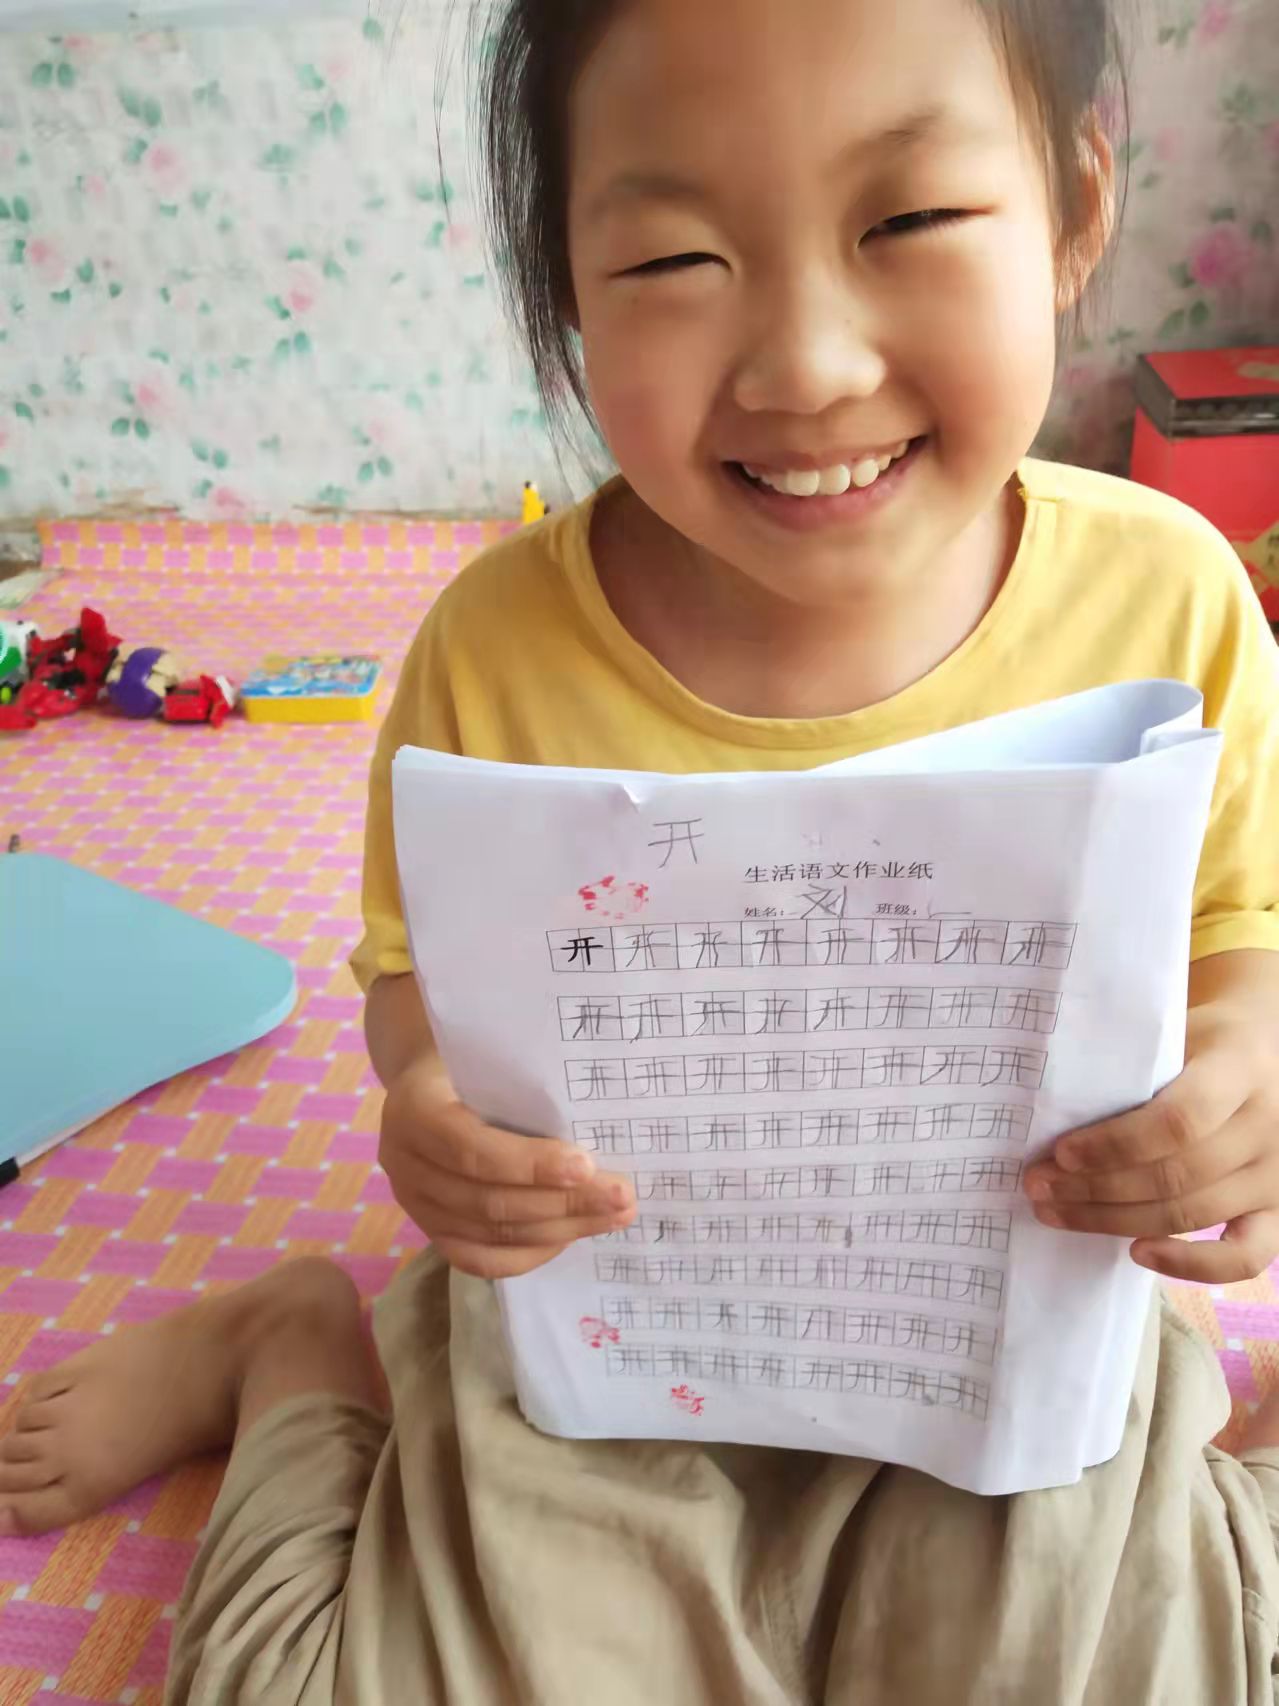 开
生活语文作业纸
姓名: 刘 班级:
开 开 开 开 开 开 开 开
开 开 开 开 开 开 开 开
开 开 开 开 开 开 开 开
开 开 开 开 开 开 开 开
开 开 开 开 开 开 开
开 开 开 开 开 开 开 开
开 开 开 开 开 开 开 开
开 开 开 开 开 开 开 开
开 开 开 开 开 开 开 开